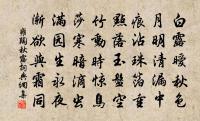 白露曖秋色
月明清漏中
痕沾珠箔重
點落玉盤空
竹動時驚鳥
莎寒暗滴蟲
滿園生永夜
漸欲與霜同
雍陶秋露詞典網